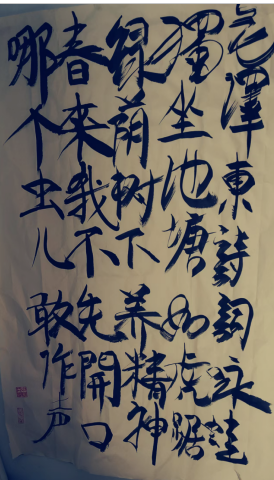 毛澤東詩詞咏蛙
獨坐池塘如虎踞
绿荫树下养精神
春來我不先開口
哪个虫儿敢作声